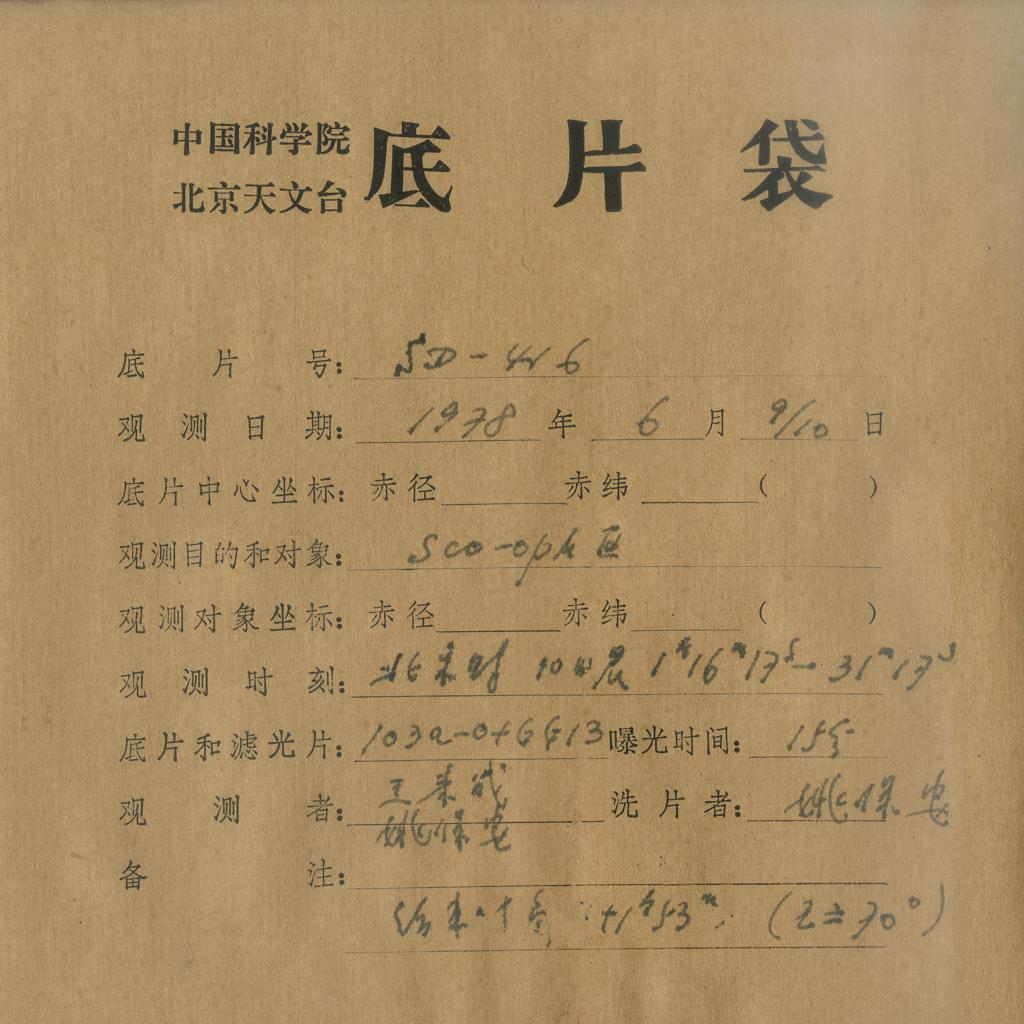 中国科学院
北京天文台
底片袋
底片号: SD-416
观测日期: 1978年 6月 9/10日
底片中心坐标: 赤径 赤纬 ( )
观测目的和对象: Sco-oph 区
观测对象坐标: 赤径 赤纬 ( )
观测时刻: 北京时 10日晨 1ʰ16ᵐ17ˢ - 31ᵐ17ˢ
底片和滤光片: 103a-O+GG13 曝光时间: 15分
观测者: 王
姚保安
洗片者: 姚保安
备注:
结束时 +1ʰ53ᵐ (Z≐70°)